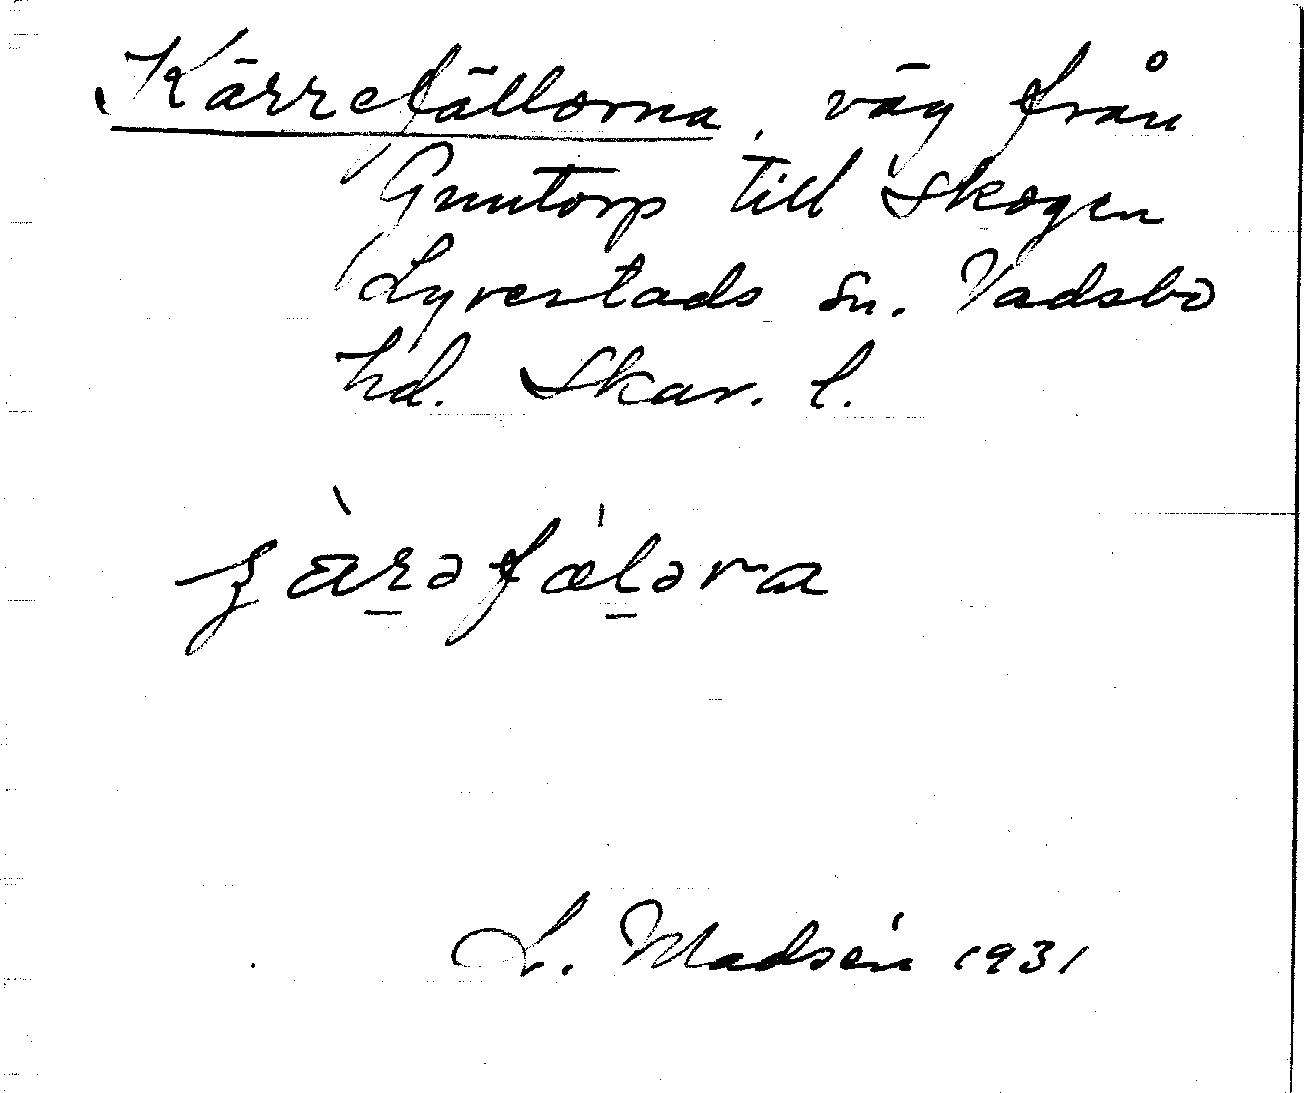 Kärrefällorna, väg från
Gunntorp till skogen
Lyrestads sn. Vadsbo
hd. Skar. l.
L. Madsén 1931